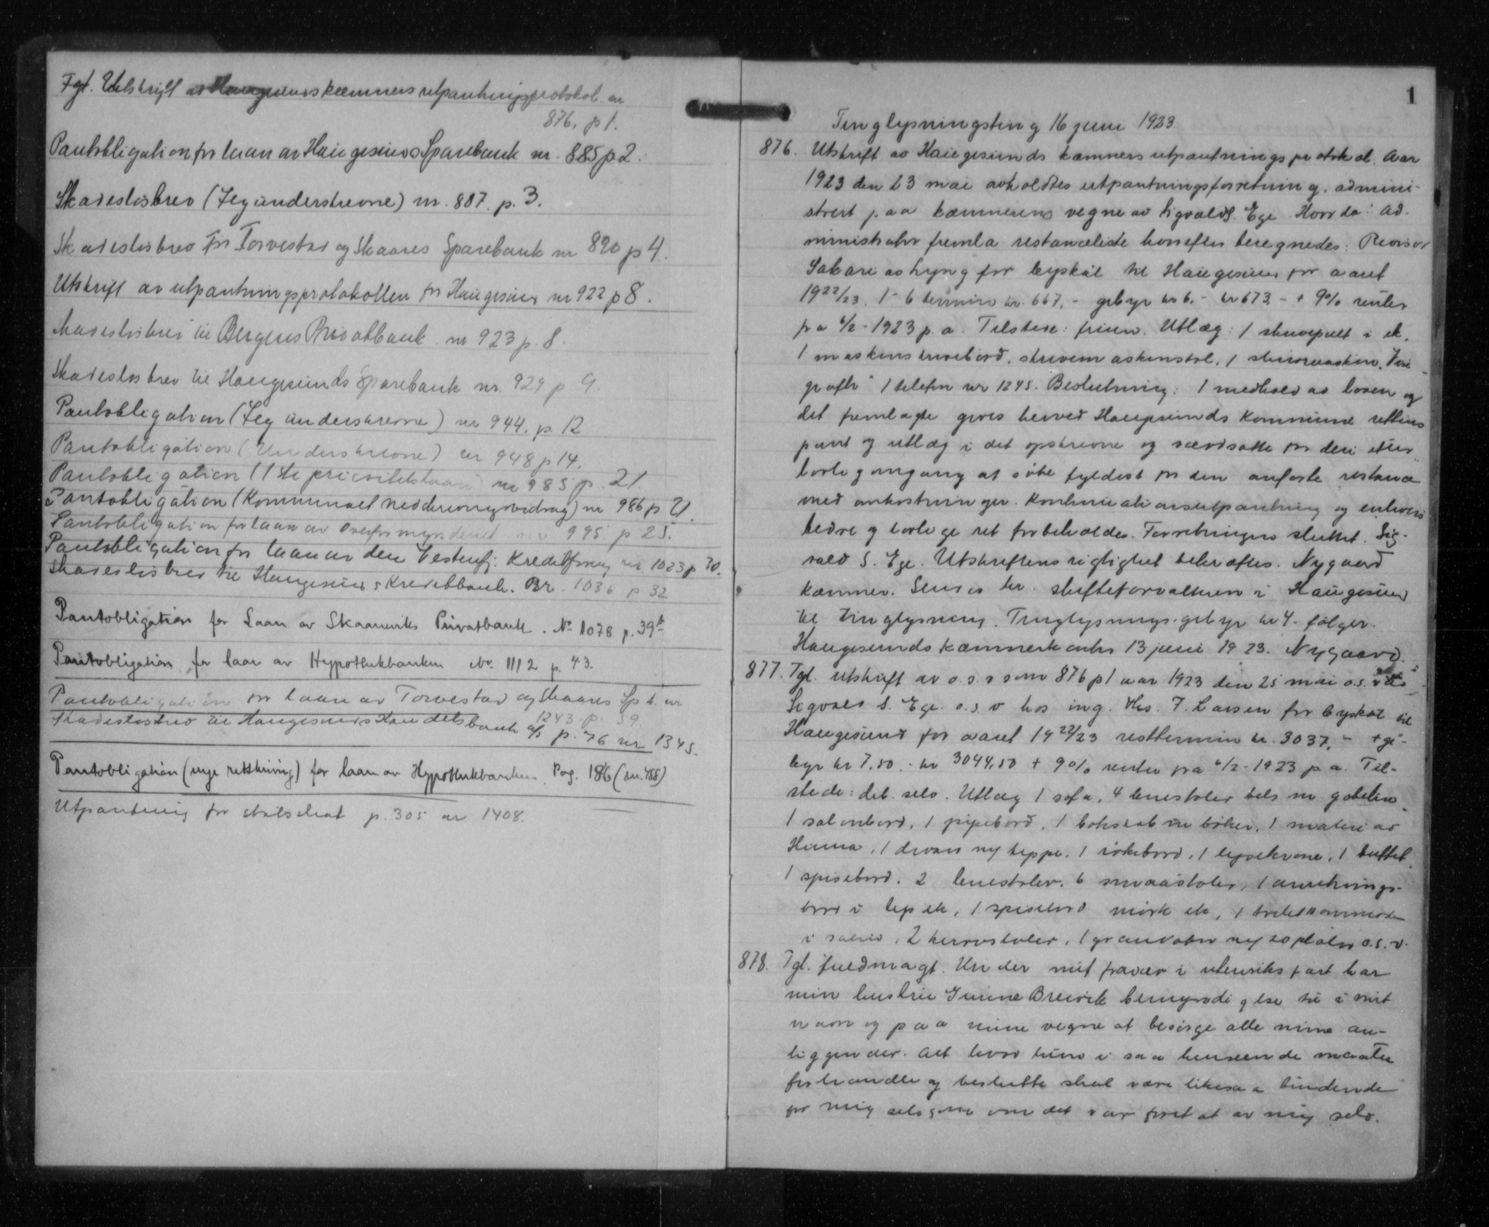 Fgt. Utskrift av Haugesunds kæmners utpantningsprotokol nr
876, p 1.
Pantobligation for laan av Haugesunds Sparebank nr. 885 p 2.
Skadesløsbrev (Jeg underskrevne) nr. 887. p. 3.
Skadesløsbrev for Torvestad og Skaares Sparebank nr 890 p 4.
Utskrift av utpantningsprotokollen for Haugesund nr 922 p 8.
Skadesløsbrev til Bergens Privatbank nr 923 p. 8.
Skadesløsbrev til Haugesunds Sparebank nr. 929 p 9.
Pantobligation (Jeg underskrevne) nr 944. p. 12
Pantobligation (Underskrevne) nr 948 p 14.
Pantobligation (1ste prioritetslaan) nr 985 p. 21.
Pantobligation (Kommunalt nedskrivningsbidrag) nr 986 p 21.
Pantobligation for laan av Overformynderiet nr 995 p 25.
Pantobligation for laan av den Vestenfj. Kreditforening nr 1023 p 30.
Skadesløsbrev til Haugesunds Kreditbank. Br. 1036 p 32
Pantobligation for Laan av Skaanevik Privatbank. No 1078 p. 39b
Pantobligation for laan av Hypothekbanken No. 1112 p. 43.
Pantobligation for laan av Torvestad og Skaares Spb. nr
1243 p. 59.
Skadesløsbrev til Haugesunds Handelsbank p. 76 nr 1345.
Pantobligation (nye retskrivning) for laan av Hypothekbanken. Pag. 186
Utpantning for statsskat p. 305 nr 1408.
1
Tinglysningsting 16 juni 1923
876. Utskrift av Haugesunds kæmners utpantningsprotokol. Aar
1923 den 23 mai avholdtes utpantningsforretning, admini-
strert paa kæmnerens vegne av Sigvald S. Ege Horrda: Ad-
ministrator fremla restanceliste hvorefter beregnedes: Revisor
for byskat til Haugesund for aaret
1922/23, 1-6 termin kr. 667,- gebyr kr 6,- kr 673,- + 9% renter
fra 6/2-1923 p. a. Tilstede: fruen. Utlæg: 1 skrivepult i ek,
1 maskinskrivebord, skrivemaskinstol, 1 skrivemaskin,
1 telefon nr 1245. Beslutning: I medhold av loven og
det fremlagte gives herved Haugesunds Kommune rettens
pant og utlæg i det opskrevne og værdsatte for deri efter
lovlig omgang at søke fyldest for den anførte restance
med omkostninger. Kontinuationsutpantning og enhver
bedre og lovlige ret forbeholdes. Forretningen sluttet. Sig-
vald S. Ege. Utskriftens rigtighet bekræftes. Nygaard
kæmner. Sendes hr. skifteforvalteren i Haugesund
til tinglysning. Tinglysnings-gebyr kr 4- følger.
Haugesunds kæmnerkontor 13 juni 1923. Nygaard.
877. Tgl. utskrift av o.s.v som 876 p 1 aar 1923 den 25 mai o.s.v
Sigvald S. Ege. o.s.v hos ing. Hs. J. Larsen for byskat til
Haugesund for aaret 1922/23 resttermin kr. 3037,- + ge-
byr kr 7,50.- kr 3044,50 + 9% renter fra 6/2-1923 p. a. Til-
stede: det. selv. Utlæg 1 sofa, 4 lenestoler bels m. gobelin
1 salonbord, 1 pipebord, 1 bokskab m bøker, 1 maleri av
1 divan m/ teppe, 1 røkebord, 1 lysekrone, 1 buffet
1 spisebord. 2 lenestoler, 6 smaastoler, 1 anretnings-
bord i lys ek, 1 spisebord mørk ek, 1 toiletkommode
2 kurvstoler, 1 m/ 20 plater o.s.v.
878. Tgl. fuldmagt. Under mit fravær i utenriksfart har
min hustru Gurine Breivik bemyndigelse til i mit
navn og paa mine vegne at besørge alle mine an-
liggender. Alt hvad hun i saa henseende maatte
forhandle og beslutte skal være likesaa bindende
for mig selv som om det var foretat av mig selv.